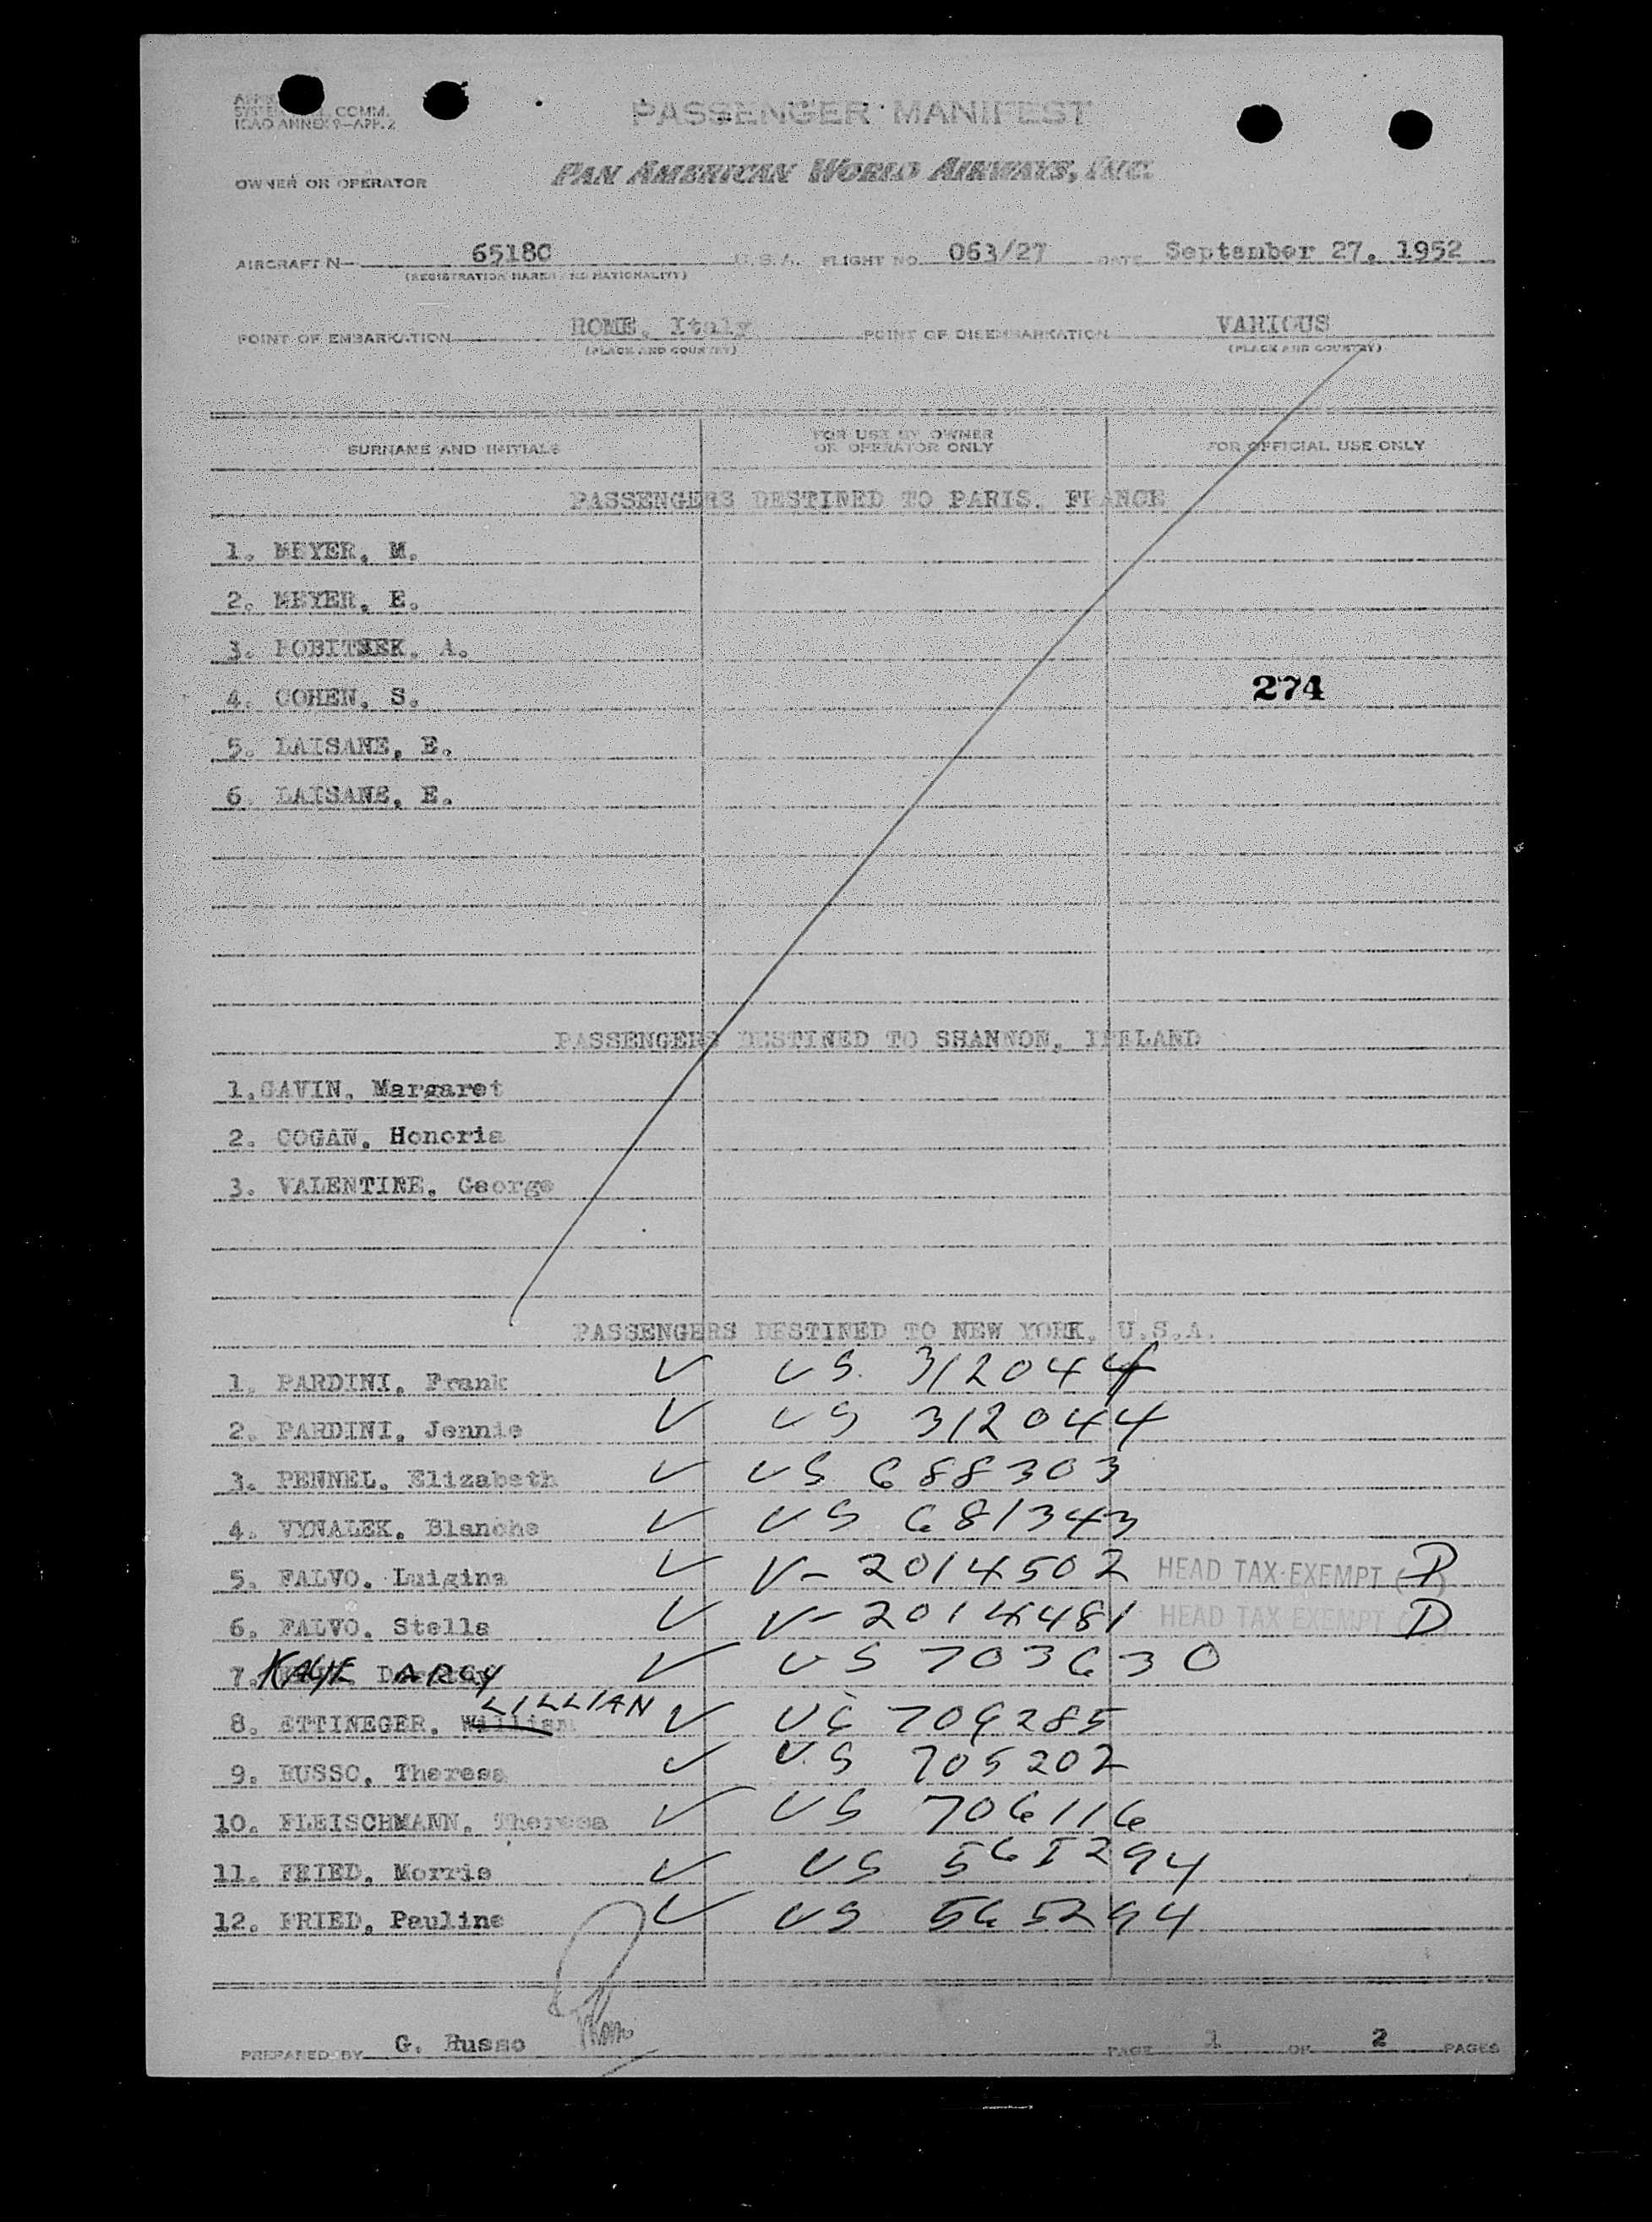 SYSTEM COMM.
ICAO ANNEX 9—APP. 2
PASSENGER MANIFEST
OWNER OR OPERATOR PAN AMERICAN WORLD AIRWAYS, INC.
AIRCRAFT N— 65180 U.S.A. FLIGHT NO. 063/27 DATE September 27, 1952
(REGISTRATION MARKS AND NATIONALITY)
POINT OF EMBARKATION ROME, Italy POINT OF DISEMBARKATION VARIOUS
(PLACE AND COUNTRY) (PLACE AND COUNTRY)
SURNAME AND INITIALS FOR USE BY OWNER OR OPERATOR ONLY FOR OFFICIAL USE ONLY
PASSENGERS DESTINED TO PARIS, FRANCE
1. MEYER, M.
2. MEYER, E.
3. A.
4. COHEN, S. 274
5. LAISANE, E.
6. LAISANE, E.
PASSENGERS DESTINED TO SHANNON, IRELAND
1. GAVIN, Margaret
2. COGAN, Honoria
3. VALENTINE, George
PASSENGERS DESTINED TO NEW YORK, U.S.A.
1. PARDINI, Frank ✓ US. 312044
2. PARDINI, Jennie ✓ US 312044
3. PENNEL, Elizabeth ✓ US 688303
4. VYNALEK, Blanche ✓ US 681343
5. FALVO, Luigina ✓ V-2014502 HEAD TAX EXEMPT ( D )
6. FALVO, Stella ✓ V-2014481 HEAD TAX EXEMPT ( D
7. KAYE ✓ US 703630
LILLIAN
8. ETTINEGER, William ✓ US 709285
9. RUSSO, Theresa ✓ US 705202
10. FLEISCHMANN, Theresa ✓ US 706116
11. FRIED, Morris ✓ US 565294
12. FRIED, Pauline ✓ US 565294
PREPARED BY G. Russo PAGE 1 OF 2 PAGES